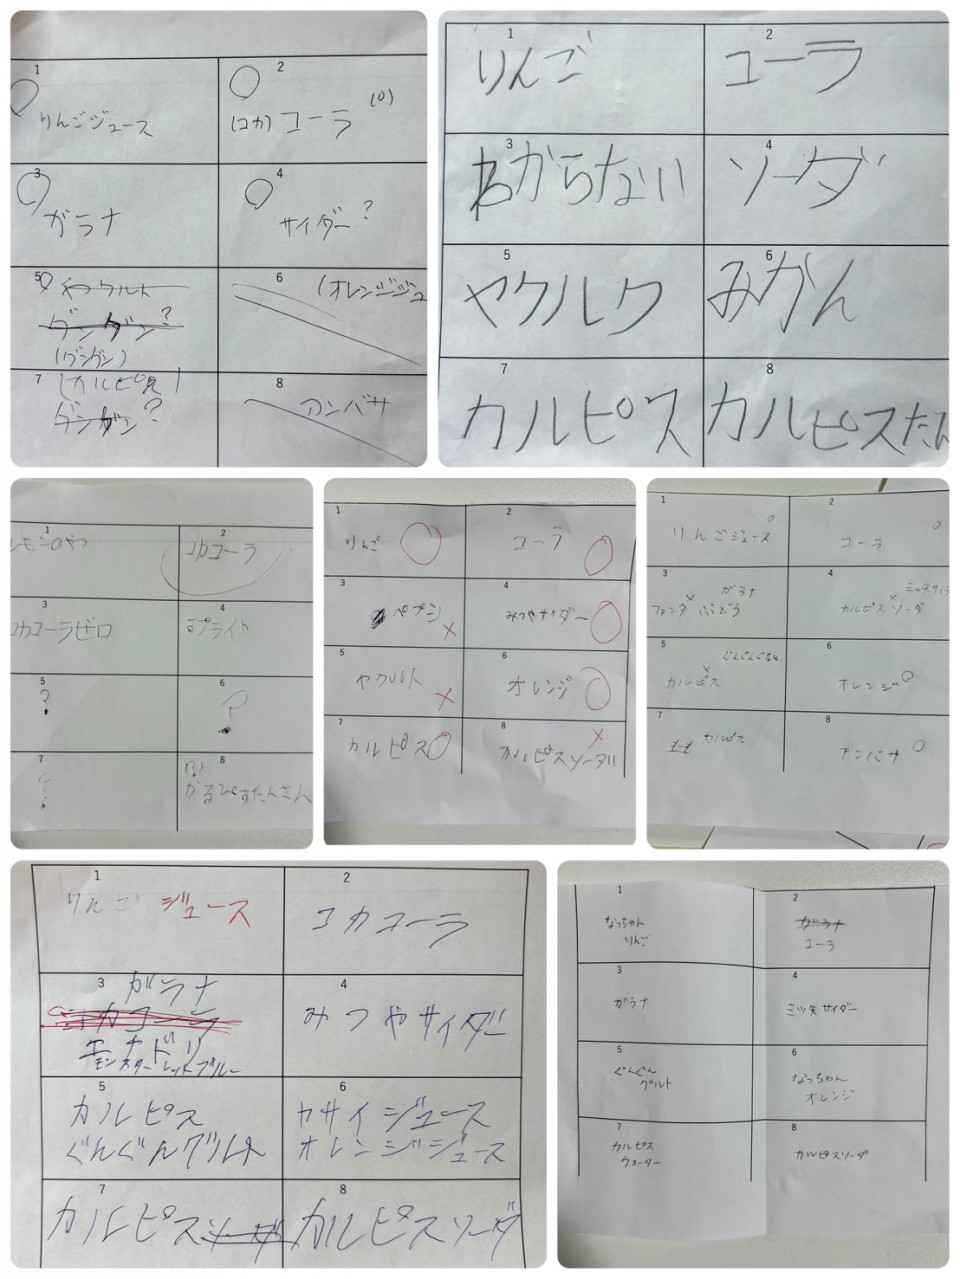 1
りんごジュース
2
(コカ) コーラ (0)
3
ガラナ
4
サイダー?
5
ヤクルト
グングン?
(グングン)
6
(オレンジジュ
7
(カルピス)
グングン?
8
アンバサ
1
りんご
2
コーラ
3
わからない
4
ソーダ
5
ヤクルク
6
みかん
7
カルピス
8
カルピスたん
1
レモンのやつ
2
コカコーラ
3
コカコーラゼロ
4
プライト
5
?
6
?
7
?
8
かるぴすたんさん
1
りんご
2
コーラ
3
ペプシ
4
みつやサイダー
5
ヤクルト
6
オレンジ
7
カルピス
8
カルピスソーダ
1
りんごジュース
2
コーラ
3
ガラナ
ファンタ ぶどう
4
ミツヤサイ
カルピスソーダ
5
ぐんぐんぐると
カルピス
6
オレンジ
7
カルピス
8
アンバサ
1
りんご ジュース
2
コカコーラ
3
ガラナ
コカコーラ
エナドリ
モンスター レットブルー
4
みつやサイダー
5
カルピス
ぐんぐんグルト
6
ヤサイジュース
オレンジジュース
7
カルピスソーダ
8
カルピスソーダ
1
なっちゃん
りんご
2
ガラナ
コーラ
3
ガラナ
4
ミツ矢サイダー
5
ぐんぐん
グルト
6
なっちゃん
オレンジ
7
カルピス
ウォーター
8
カルピスソーダ